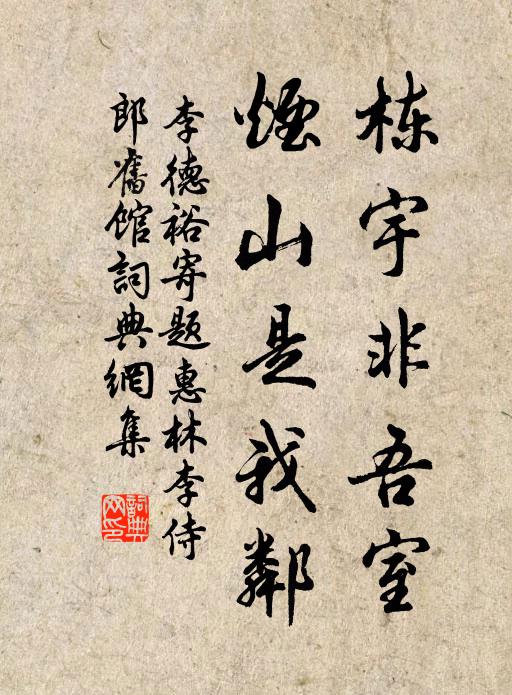 栋宇非吾室
烟山是我鄰
李德裕寄题惠林李侍
郎舊馆詞典網集
詞典网印